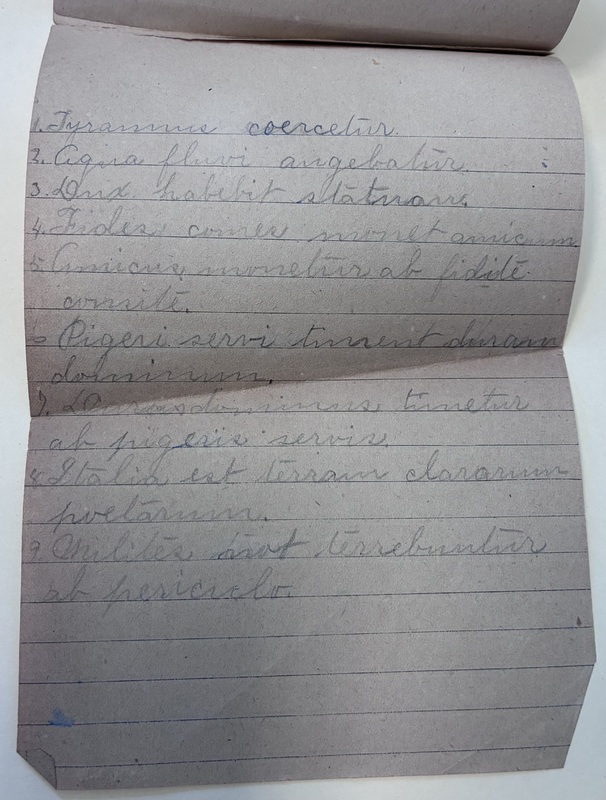 1. Tyrannus coercetur.
2. Aqua fluvi augebatur.
3. Dux habebit statuam.
4. Fides comes monet amicum
5. Amicus monetur ab fidite
comite.
6 Pigeri servi timent duram
dominum.
7. Durus dominus timetur
ab pigeris servis.
8. Italia est terram clararum
poetarum.
9 Milites not terrebuntur
ab periculo.